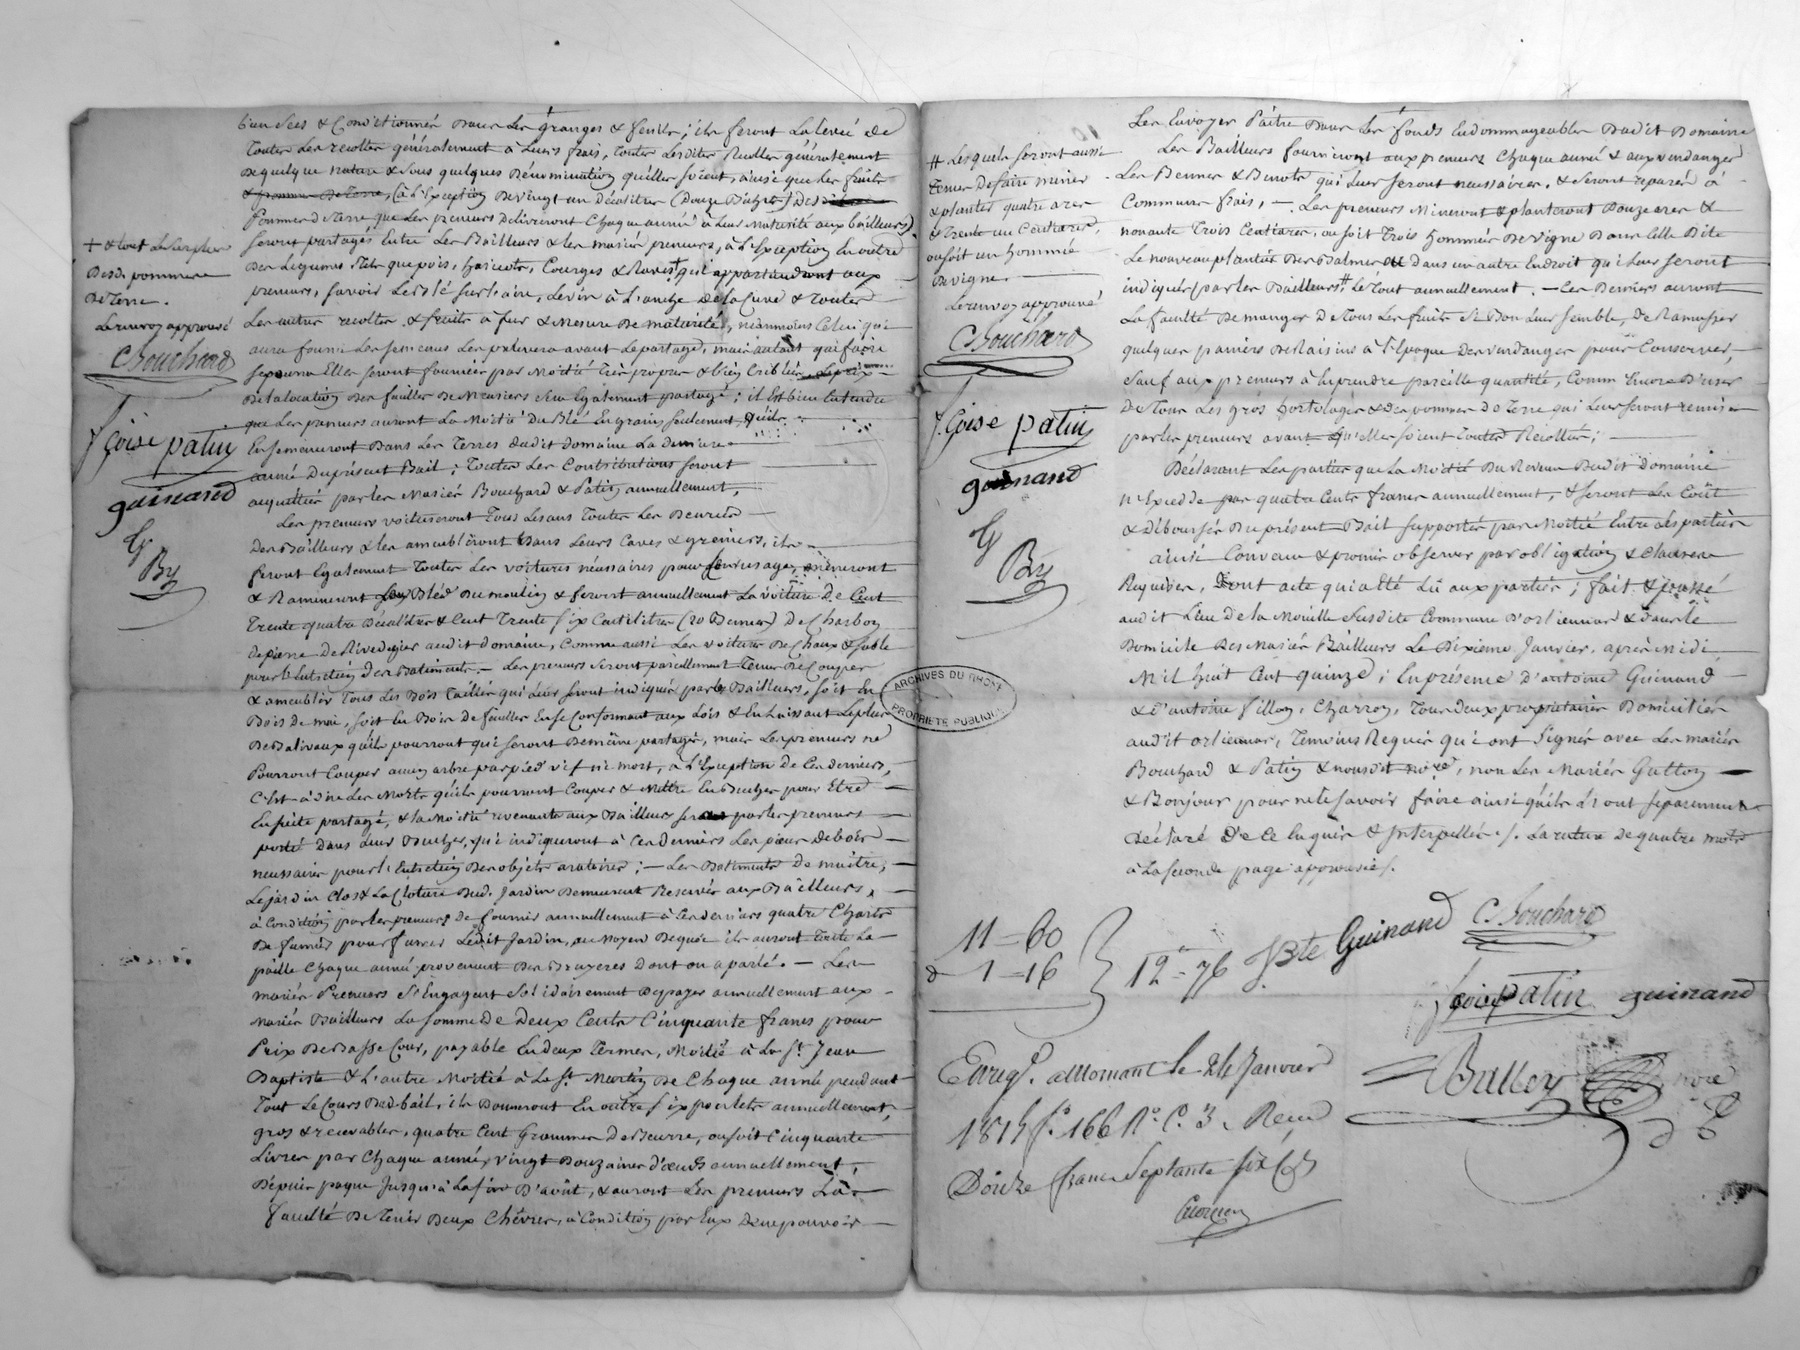 bien secs & Conditionnés dans les granges & fenils ; ils feront la levée de
toutes les recoltes généralement à leurs frais, toutes lesdites Recoltes généralement
de quelque nature & sous quelques dénomination qu'elles soient, ainsi que les fruits
& pommes de terre, (à l'Exception de vingt un décalitres (douze Bichets) des
Pommes de terre que les preneurs délivreront Chaque année à leur maturité aux bailleurs)
seront partagés Entre les Bailleurs & les mariés preneurs, à l'Exception En outre
des légumes tels que pois, haricots, Courges & Raves + qui appartiendront aux
preneurs, savoir le blé sur l'aire, le vin à l'anche de la Cuve & toutes
les autres recoltes & fruits à fur & mesure de maturité, néanmoins Celui qui
aura fourni les semences les prélevera avant le partage, mais autant que faire
se pourra Elles seront fournies par Moitié très propres & bien Criblées
de la location des feuilles de Meuriers sera Egalement partagé ; il Est bien Entendu
que les preneurs auront la Moitié du Blé En grain seulement, qu'ils
Ensemenceront dans les terres dudit domaine la derniere
année du présent Bail ; toutes les Contributions seront
acquittées par les Mariés Bouchard & Patin annuellement,
Les preneurs voitureront tous les ans toutes les denrées
des Bailleurs & les ameubliront dans leurs Caves & greniers, ils
feront Egalement toutes les voitures nécessaires pour leur usage, meneront
& Rameneront les Bleds du moulin & feront annuellement la voiture de Cent
trente quatre décalitres & Cent trente six Centilitres (20 Bennes) de Charbon
de pierre de Rivedegier audit domaine, Comme aussi les voitures de Chaux & sable
pour l'Entretien des Batiments. — Les preneurs seront pareillement tenus de Couper
& ameubler tous les Bois taillis qui leur seront indiqués par les Bailleurs, soit En
Bois de mai, soit En Bois de feuilles En se Conformant aux Lois & En laissant le plus
de Baliveaux qu'ils pourront qui seront de même partagés, mais les preneurs ne
Pourront Couper aucun arbre par pied vif ni mort, à l'Exception de Ces derniers,
C'Est à dire les Morts qu'ils pourront Couper & Mettre En Bucher pour Etre
Ensuite partagé, & la Moitié revenante aux Bailleurs sera par les preneurs
porté dans leur Bucher, qui indiqueront à Ces derniers les pieces de bois
necessaires pour l'Entretien des objets aratoires ; — Les Batiments de maitre,
Le jardin Clos & la Cloture dud. jardin demeurent Reservés aux Bailleurs,
à Condition par les preneurs de fournir annuellement à Ces derniers quatre Chars
de fumier pour fumer ledit Jardin, au moyen de quoi ils auront toute la
paille Chaque année provenant des Bruyeres dont on a parlé. — Les
mariés Preneurs S'Engagent Solidairement de payer annuellement aux
Mariés Bailleurs la somme de deux Cents Cinquante francs pour
Prix de Basse Cour, payable En deux termes, Moitié à la St Jean
Baptiste & l'autre Moitié à la St Martin de Chaque année pendant
tout le Cours dud. bail, ils donneront En outre six poulets annuellement,
gros & recevables, quatre Cent Grammes de Beurre, ou soit Cinquante
Livres par Chaque année, vingt douzaines d'œufs annuellement,
depuis paque Jusqu'à la fin d'août, & auront les preneurs la
faculté de tenir deux Chèvres, à Condition par Eux de ne pouvoir
+ & tout le surplus
desd. pommes
de terre.
Le renvoy approuvé
C Bouchard
fçoise patin
guinand
G
By
Les Envoyer Paitre dans les fonds Endommageables dudit Domaine
Les Bailleurs fourniront aux preneurs Chaque année & aux vendanges
Les Bennes & Benots qui leur seront necessaires, & seront reparés à
Communs frais, —. Les preneurs Mineront & planteront douze ares &
nonante trois Centiares, ou soit trois hommées de Vigne dans Celle dite
Le nouveau plantier des Balmes ou dans un autre Endroit qui leur seront
indiqués par les Bailleurs # le tout annuellement. — Ces derniers auront
La faculté de manger de tous les fruits Si Bon leur semble, de Ramasser
quelques paniers de Raisins à l'Epoque des vendanges pour Conserver,
Sauf aux preneurs à En prendre pareille quantité, Comme Encore d'user
de tous les gros hortolages & des pommes de terre qui leur seront remis
par les preneurs avant qu'elles soient toutes Recoltées ;
Déclarant les parties que la Moitié du Revenu dudit domaine
n'Excede pas quatre Cents francs annuellement, & seront les Coût
& déboursés du présent Bail supportés par Moitié Entre les parties
ainsi Convenu & promis observer par obligation & Clauses
Requises, Dont acte qui a été Lu aux parties ; fait & passé
audit Lieu de la Mouille susdite Commune d'orlienas & dans le
domicile des Mariés Bailleurs Le dixieme Janvier, après Midi
Mil huit Cent quinze ; En présence d'antoine Guinand
& d'antoine fillon, Charron, tous deux propriétaires Domiciliés
audit orlienas, témoins Requis qui ont Signés avec les mariés
Bouchard & Patin & nousdit nore, non les Mariés Gutton
& Bonjour pour ne le savoir faire ainsi qu'ils l'ont separement
déclaré de Ce Enquis & Interpellés ./. La rature de quatre mots
à la seconde page approuvée /.
# Lesquels seront aussi
tenus de faire miner
& planter quatre ares
& trente un Centiares,
ou soit un hommée
de vigne
Le renvoy approuvé
C Bouchard
fçoise patin
guinand
G
By
11 = 60
d 1 = 16
12 = 76
JBte Guinand
C. Bouchard
fçoise patin guinand
Balley nore
Enregé. a Mornant le 24 Janvier
1815 fo. 166 Ro. C. 3. Recu
Douze francs Septante Six Cs
ARCHIVES DU RHONE
PROPRIETE PUBLIQUE